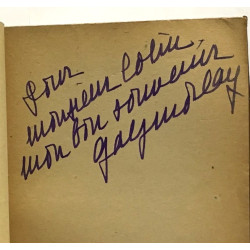 Pour
monsieur Colin,
mon bon souvenir
Gaby Morlay